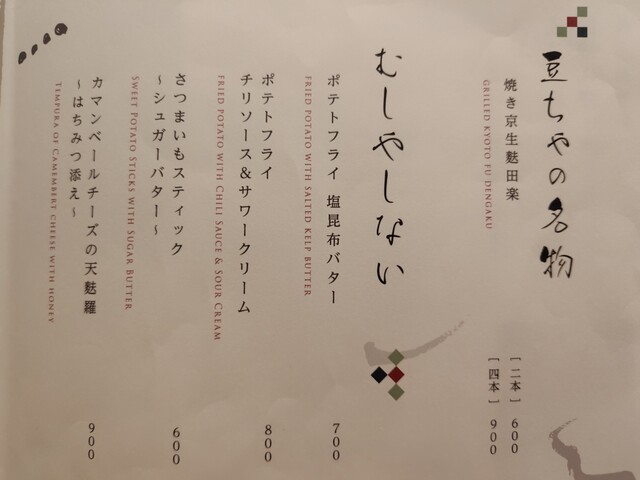 豆ちゃの名物
焼き京生麩田楽
GRILLED KYOTO FU DENGAKU
［二本］ 600
［四本］ 900
むしやしない
ポテトフライ 塩昆布バター
FRIED POTATO WITH SALTED KELP BUTTER
700
ポテトフライ
チリソース&サワークリーム
FRIED POTATO WITH CHILI SAUCE & SOUR CREAM
800
さつまいもスティック
～シュガーバター～
SWEET POTATO STICKS WITH SUGAR BUTTER
600
カマンベールチーズの天麩羅
～はちみつ添え～
TEMPURA OF CAMEMBERT CHEESE WITH HONEY
900